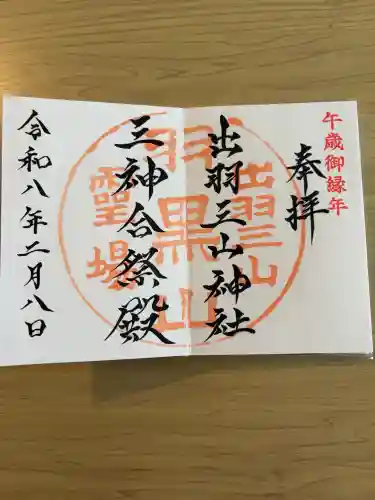 午歳御縁年
奉拝
出羽三山神社
三神合祭殿
令和八年二月八日
出羽三山
羽黒山
霊場